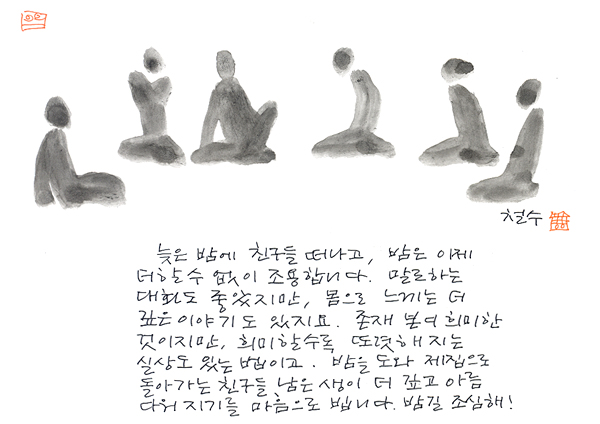 철수
늦은 밤에 친구들 떠나고, 밤은 이제
더할 수 없이 조용합니다. 말로하는
대화도 좋았지만, 몸으로 느끼는 더
깊은 이야기도 있지요. 존재 본여 희미한
것이지만, 희미할수록 또렷해지는
실상도 있는 법이고. 밤을 도와 제집으로
돌아가는 친구들 남은 생이 더 깊고 아름
다워지기를 마음으로 빕니다. 밤길 조심해!